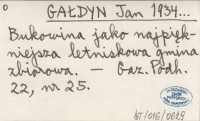 GAŁDYN Jan 1934...
Bukowina jako najpięk-
niejsza letniskowa gmina
zbiorowa. — Gaz. Podh.
22, nr 25.
bJ/016/0829